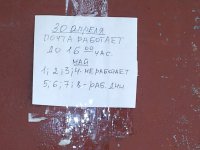 30 АПРЕЛЯ
ПОЧТА РАБОТАЕТ
ДО 16 00 ЧАС.
МАЙ
1; 2; 3; 4- НЕ РАБОТАЕТ
5; 6; 7; 8- РАБ. ДНИ